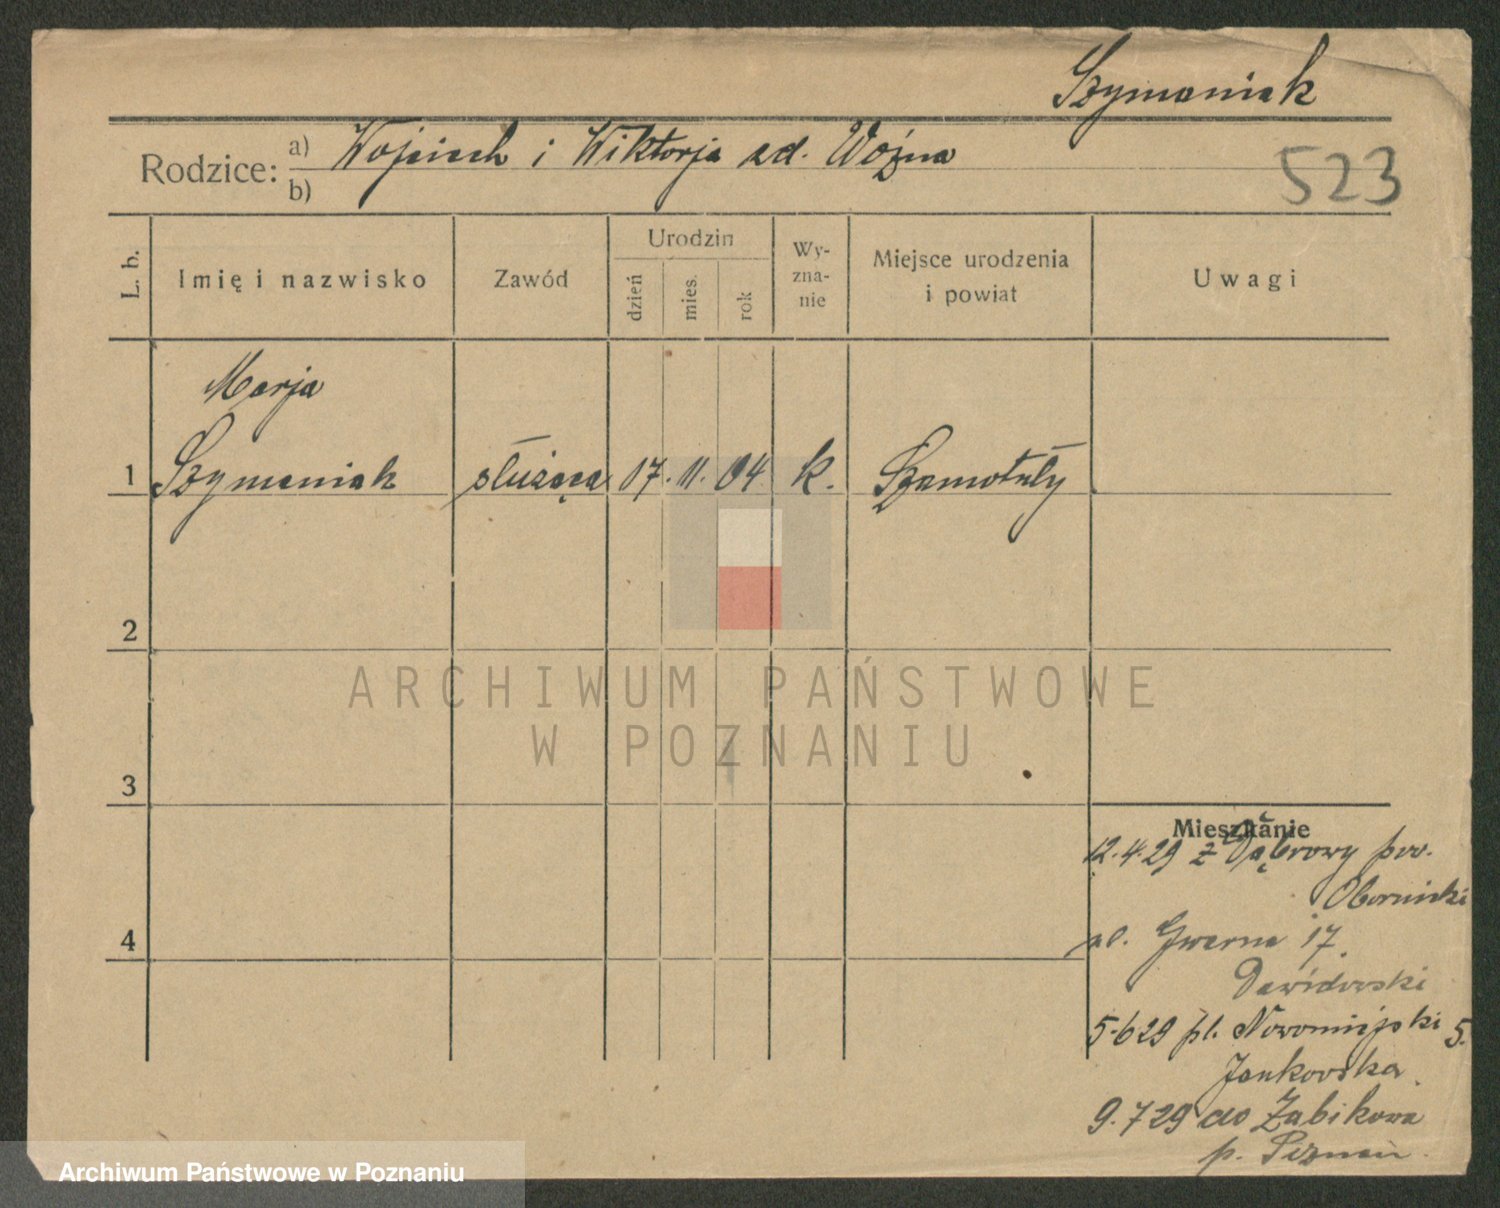 Szymaniak
Rodzice: a) Wojciech i Wiktorja zd. Woźna
b)
523
L. b.
Imię i nazwisko
Zawód
Urodzin
dzień
mies.
rok
Wy-
zna-
nie
Miejsce urodzenia
i powiat
Uwagi
Marja
1 Szymaniak służąca 17. 11. 04 k. Szamotuły
2
3
4
Mieszkanie
12.4.29 z Dąbrowy pow.
Obornicki
ul. Gwarna 17
Dawidowski
5.6 29 pl. Nowomiejski 5.
Jankowska
9.7 29 do Żabikowa
p. Poznań
ARCHIWUM PAŃSTWOWE
W POZNANIU
Archiwum Państwowe w Poznaniu